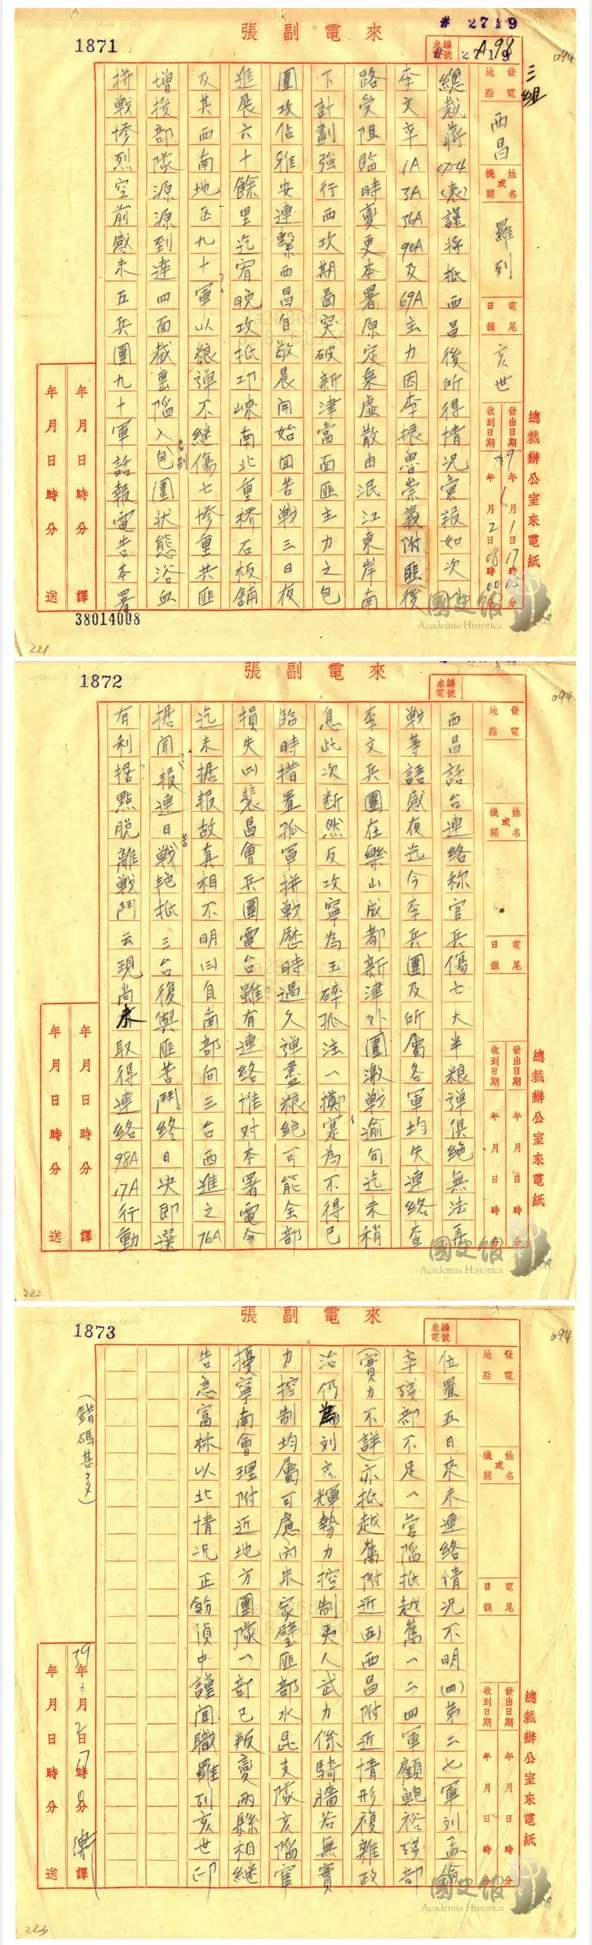 張副電來
# 2719
1871
A98
# 2719
094
三組
來電編號
發電地點 西昌
姓名或機關 羅列
電尾日韻 亥世
發出日期 39年1月1日17時 分
收到日期 年 月2日08時00分
總裁辦公室來電紙
總裁蔣 (表)謹將抵西昌後所得情況彙報如次
李文率1A3A36A90A及69A主力因李振魯崇義附匪後
路受阻臨時變更本署原定乘虛散由泯江東岸南
下計劃強行西攻期啚突破新津當面匪主力之包
圍攻佔雅安連繫西昌自敬晨開始回苦戰三日夜
進展六十餘里迄宥晚攻抵邛崍南北重橋石板舖
及其西南地區九十軍以粮彈不繼傷亡慘重共匪
增援部隊源源到達四面截裏陷入包圍狀態浴血
拼戰慘烈空前感未五兵團九十軍話報電告本署
年月日時分譯
年月日時分送
38014008
國史館
Academia Historica
221
張副電來
1872
094
來電編號
發電地點
姓名或機關
電尾日韻
發出日期 年月日時分
收到日期 年月日時分
總裁辦公室來電紙
西昌話台連絡称官兵傷亡大半粮彈俱絕無法再
戰等語感夜迄今李兵團及所屬各軍均失連絡查
李文兵團在樂山成都新津外圍激戰逾旬迄未稍
息此次断然反攻寧為玉碎孤注一擲寔為不得已
臨時措置孤軍拼戰歷時過久彈盡粮絕可能全部
損失(二)裴昌會兵團電台雖有連絡惟对本署電令
迄未據报故真相不明(三)自南部向三台西進之76A
據聞報連日戰艳抵三台後與匪苦鬥終日决即選
有利据點脱離戰鬥云現尚未取得連絡98A17A行動
年月日時分譯
年月日時分送
國史館
Academia Historica
222
張副電來
1873
094
來電編號
發電地點
姓名或機關
電尾日韻
發出日期 年月日時分
收到日期 年月日時分
總裁辦公室來電紙
位置五日來未連絡情況不明(四)第二七軍刘孟廉
率殘部不足一營陥抵越嶲一二四軍顧鮑裕殘部
(實力不詳)亦抵越嶲附近(五)西昌附近情形複雜政
治仍為刘文輝勢力控制夷人武力係騎牆若無實
力控制均屬可慮(六)朱家璧匪部水昆支隊亥陥甯
擾寧南會理附近地方團隊一部已叛變兩縣相繼
告急富林以北情况正飭偵中謹聞職羅列亥世印
(錯碼甚多)
39年1月2日17時 分 譯
年月日時分送
國史館
Academia Historica
223